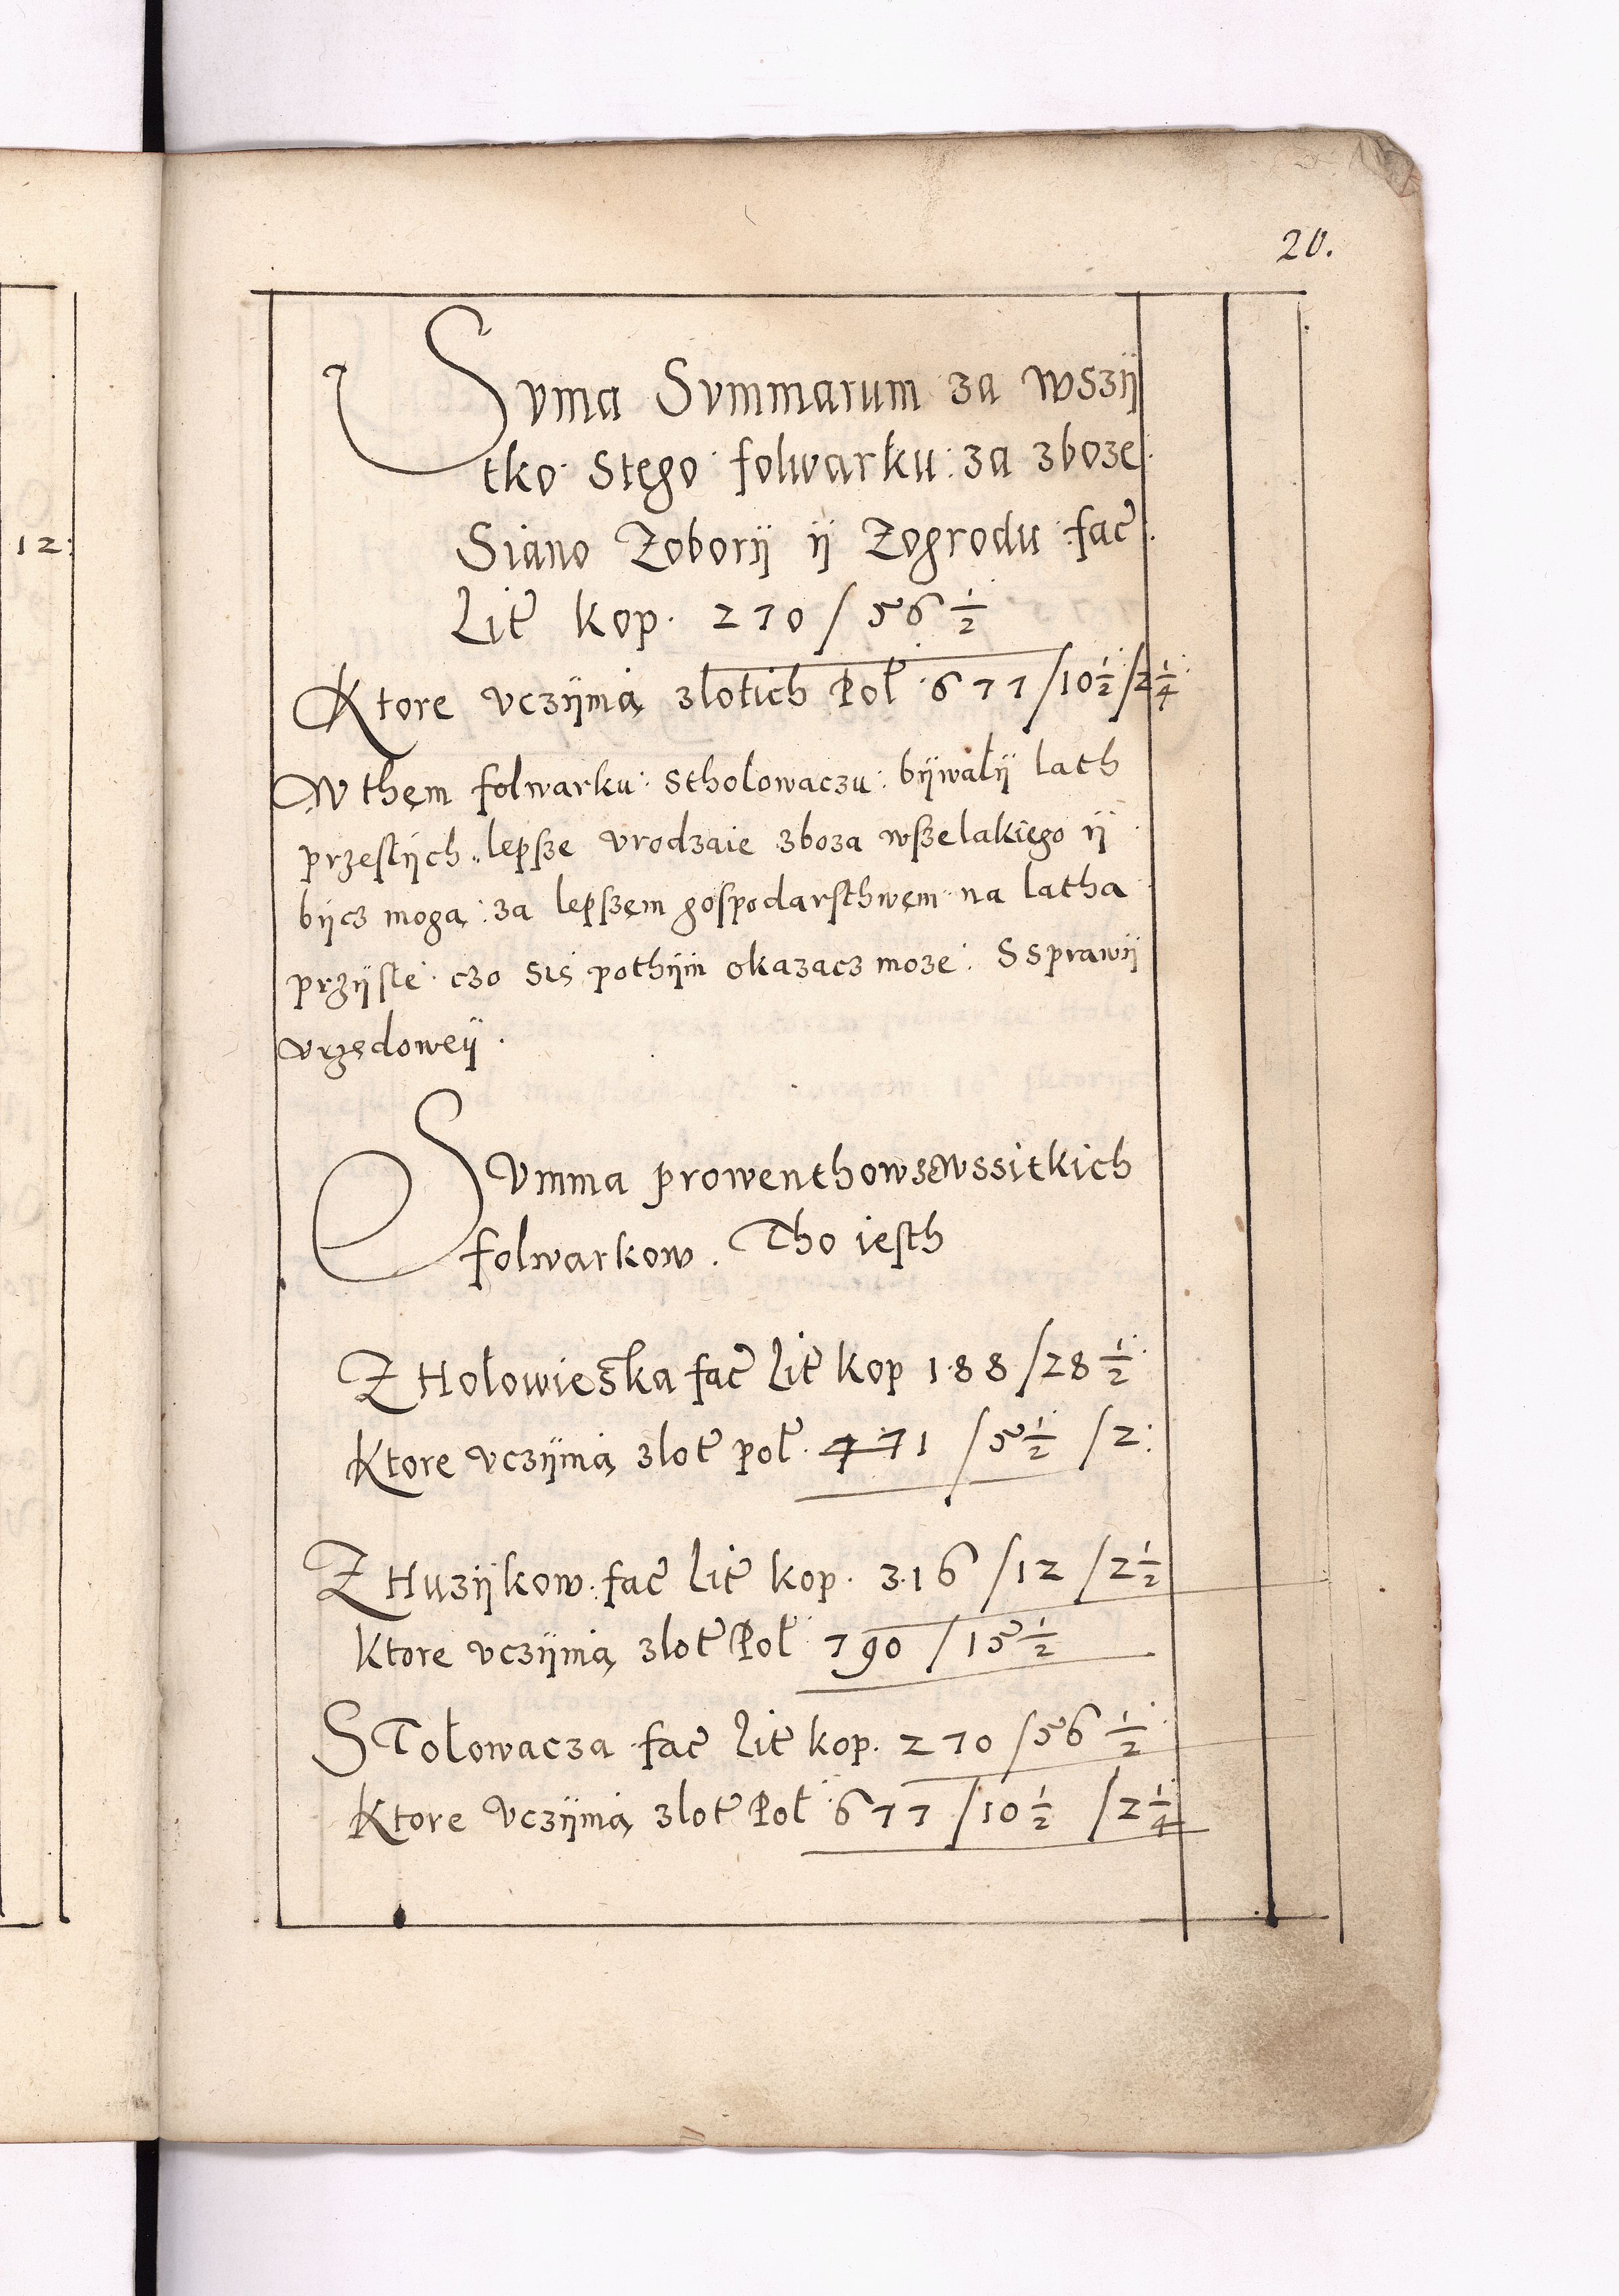 20.
12:
Svma Svmmarum za wszÿ
tko Stego folwarku: za zboze
Siano Zoborÿ ÿ Zogrodu fac̃
Lit̃ kop. 270 / 56 1/2
Ktore vczÿnią zlotich Pol̃ 677 / 10 1/2 / 2 1/4
W them folwarku: stholowaczu: bÿwalÿ lath
przeslÿch lepsze vrodzaie zboza wszelakiego ÿ
bÿcz mogą: za lepszem gospodarsthwem na latha
przÿsle czo się pothÿm okazacz moze: S sprawÿ
vrzędoweÿ.
Svmma prowenthow zewssitkich
folwarkow. Tho iesth
Z Holowieska fac̃ Lit̃ kop 188 / 28 1/2
Ktore vczÿnią zlot̃ pol̃ 471 / 5 1/2 / 2:
Z Huzÿkow. fac̃ Lit̃ kop. 316 / 12 / 2 1/2
Ktore vczÿnią zlot̃ Pol̃ 790 / 15 1/2
STolowacza fac̃ Lit̃ kop. 270 / 56 1/2
Ktore vczÿnią zlot̃ Pol̃ 677 / 10 1/2 / 2 1/4